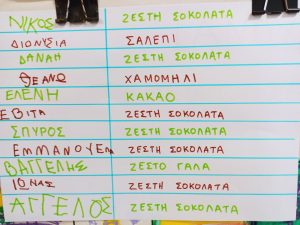 ΝΙΚΟΣ ΖΕΣΤΗ ΣΟΚΟΛΑΤΑ
ΔΙΟΝΥΣΙΑ ΣΑΛΕΠΙ
ΔΑΝΑΗ ΖΕΣΤΗ ΣΟΚΟΛΑΤΑ
ΘΕΑΝΩ ΧΑΜΟΜΗΛΙ
ΕΛΕΝΗ ΚΑΚΑΟ
ΕΒΙΤΑ ΖΕΣΤΗ ΣΟΚΟΛΑΤΑ
ΣΠΥΡΟΣ ΖΕΣΤΗ ΣΟΚΟΛΑΤΑ
ΕΜΜΑΝΟΥΕΛΑ ΖΕΣΤΗ ΣΟΚΟΛΑΤΑ
ΒΑΓΓΕΛΗΣ ΖΕΣΤΟ ΓΑΛΑ
ΙΩΝΑΣ ΖΕΣΤΗ ΣΟΚΟΛΑΤΑ
ΑΓΓΕΛΟΣ ΖΕΣΤΗ ΣΟΚΟΛΑΤΑ